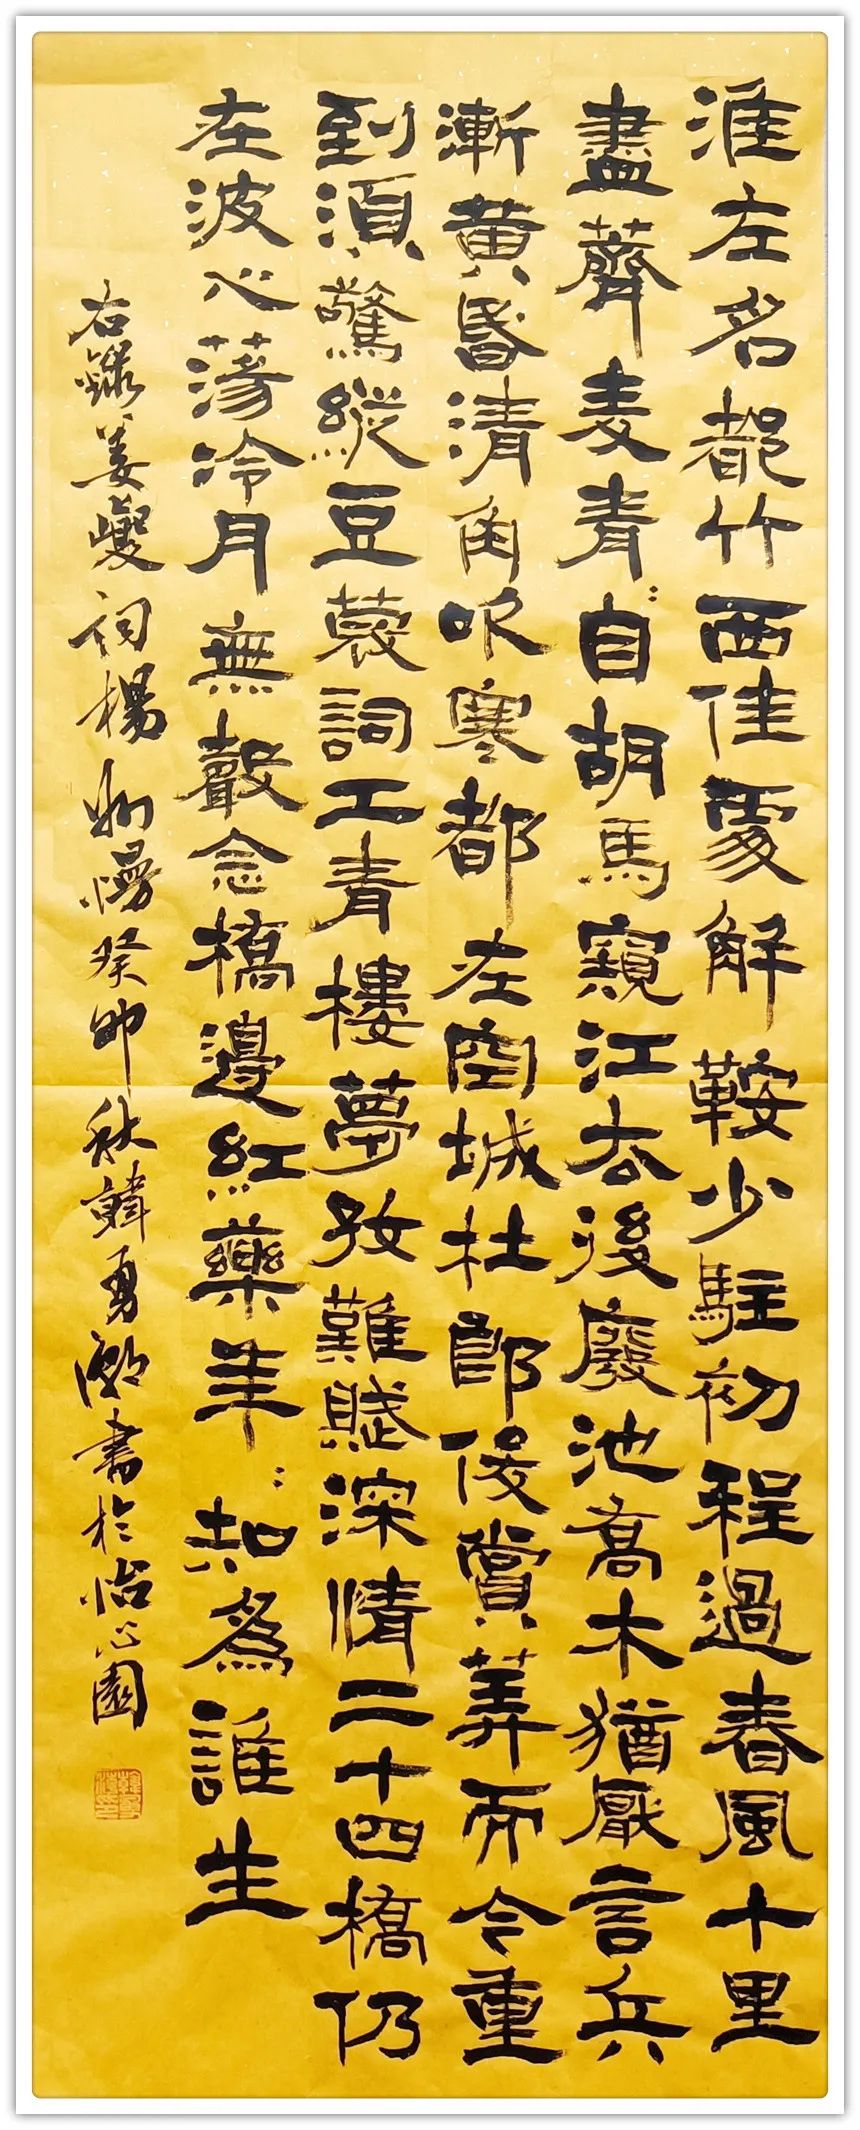 淮左名都竹西佳處解鞍少駐初程過春風十里
盡薺麦青〻自胡馬窺江去後廢池喬木猶厭言兵
漸黄昏清角吹寒都在空城杜郎俊賞筭而今重
到須驚縱豆蔻詞工青樓夢好難賦深情二十四橋仍
在波心蕩冷月無聲念橋邊紅藥年〻知為誰生
右錄姜夔詞揚州慢癸卯秋韓勇書於怡心園